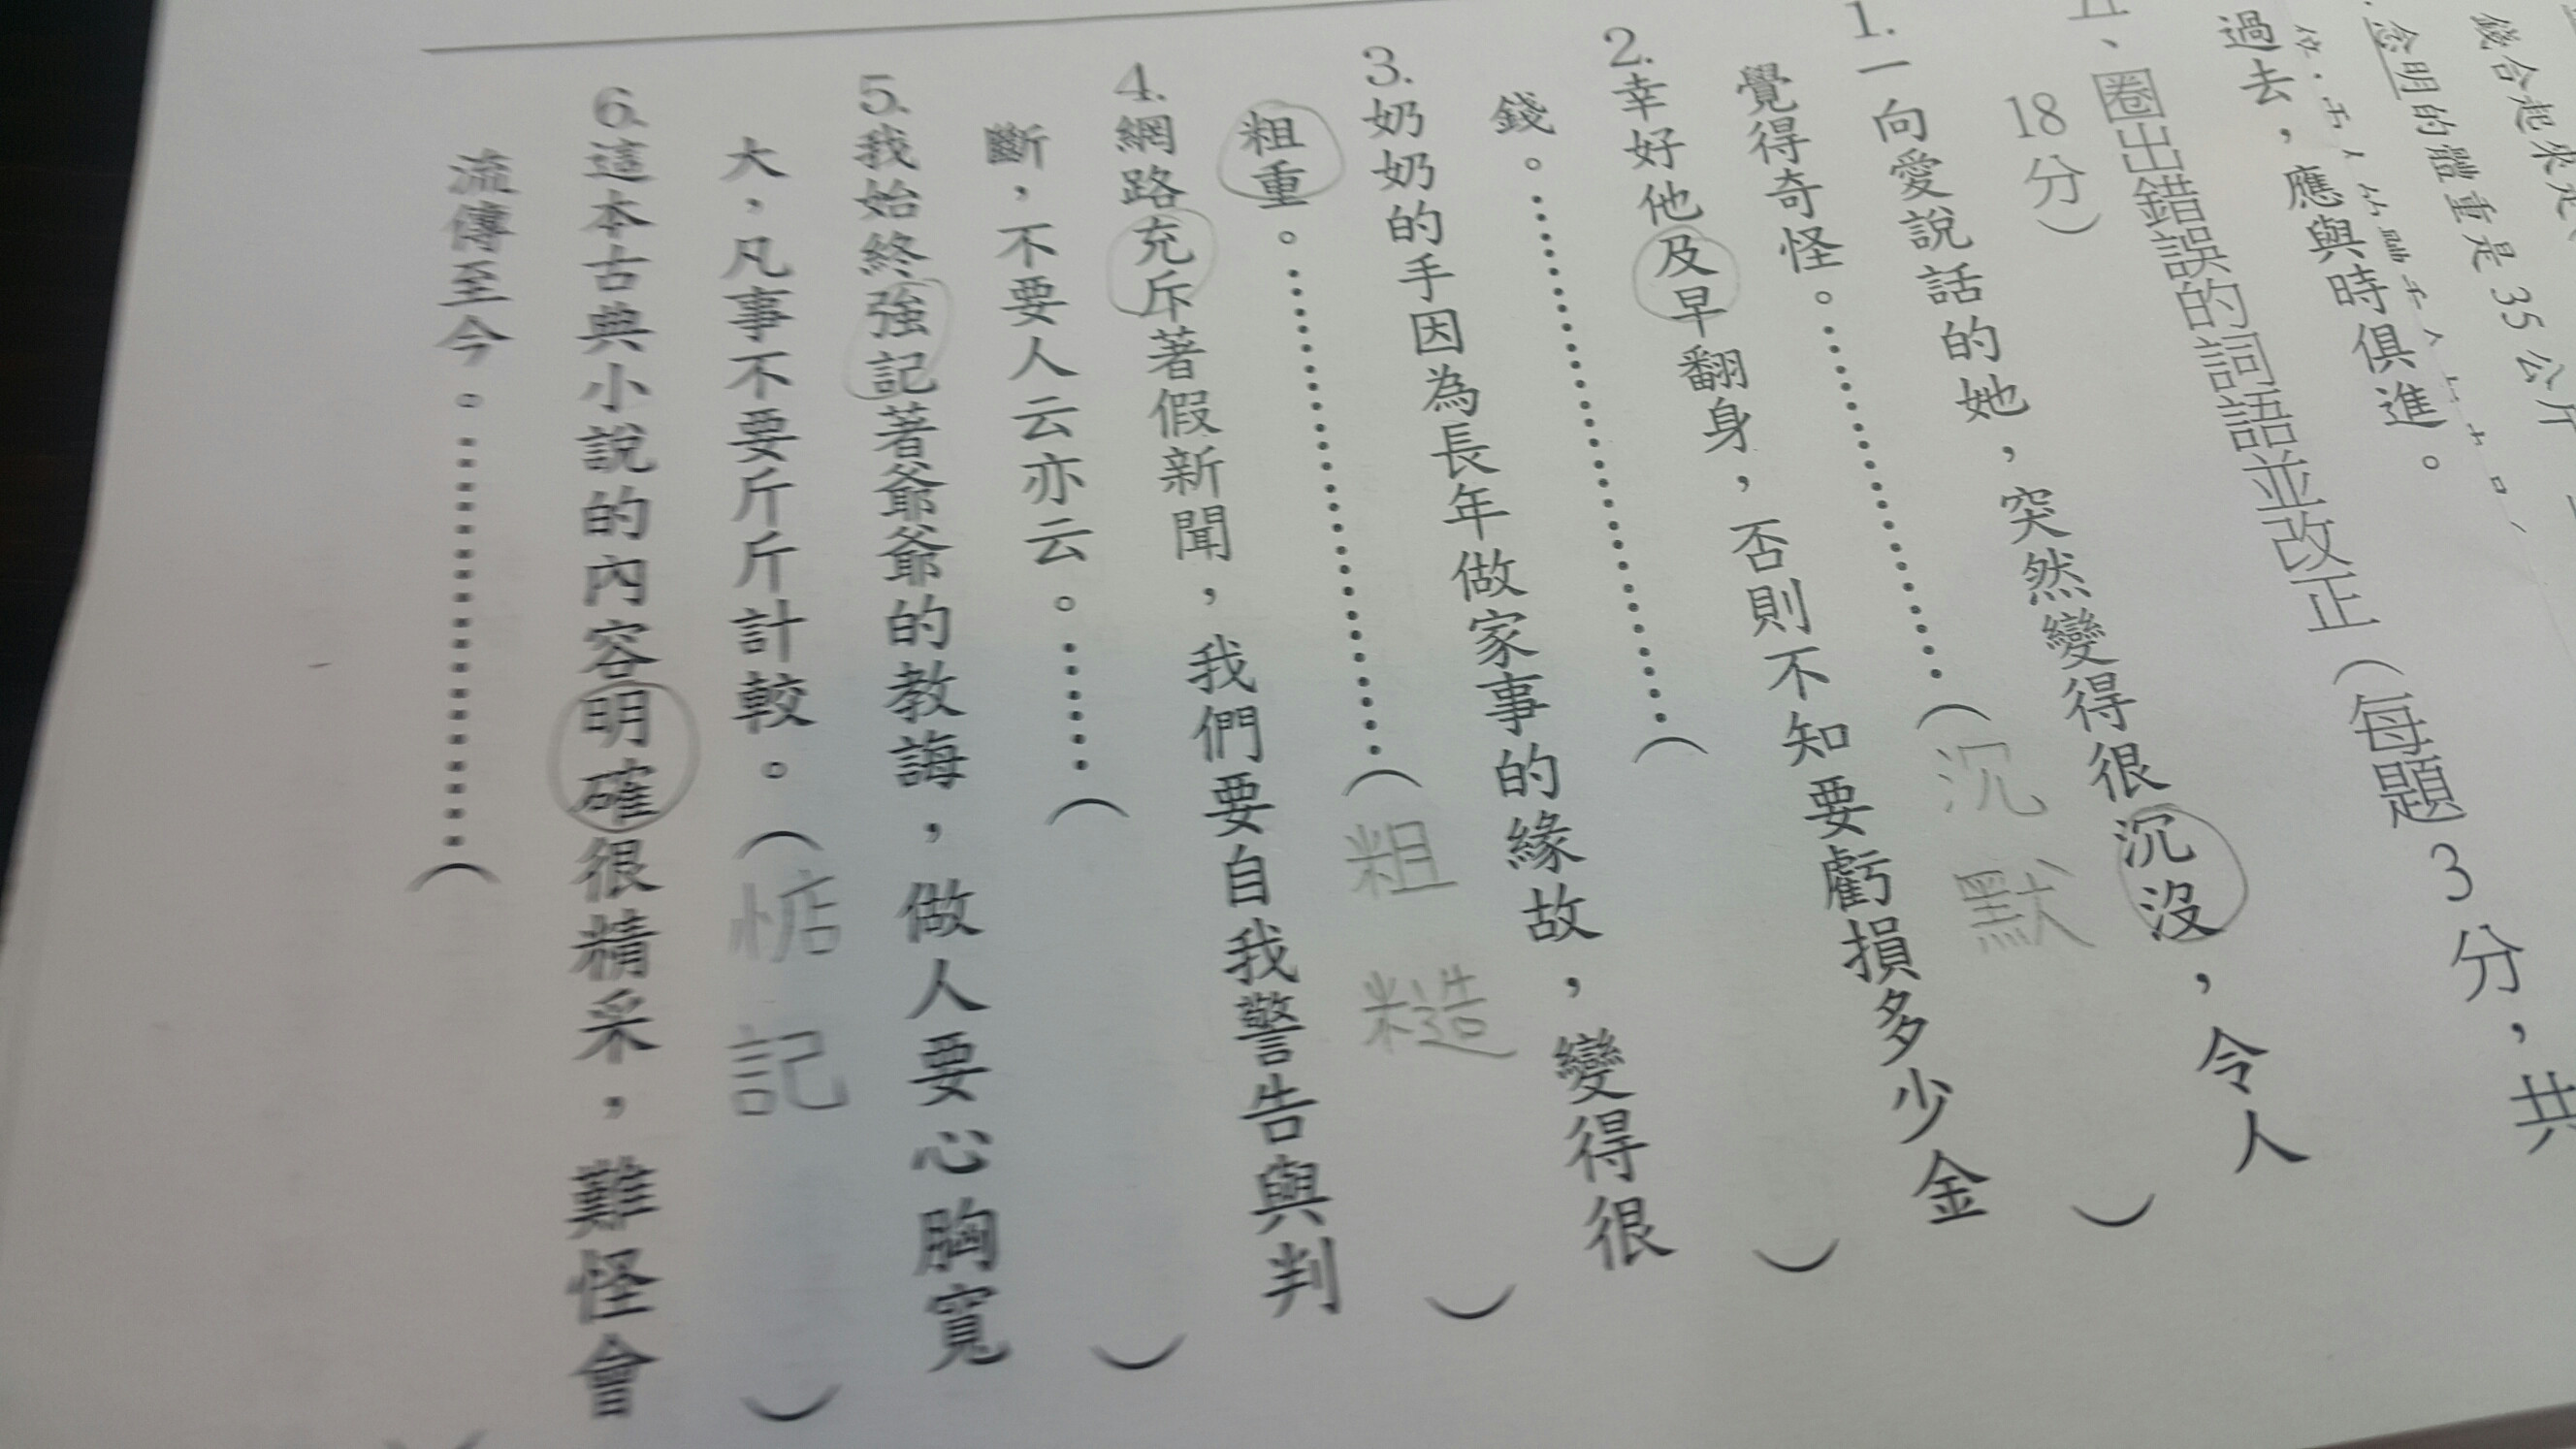 錢合起來是
念明的體重是35公斤
過去，應與時俱進。
五、圈出錯誤的詞語並改正（每題3分，共
18分）
1.一向愛說話的她，突然變得很沉沒，令人
覺得奇怪。…………………（沉默）
2.幸好他及早翻身，否則不知要虧損多少金
錢。…………………………（）
3.奶奶的手因為長年做家事的緣故，變得很
粗重。………………………（粗糙）
4.網路充斥著假新聞，我們要自我警告與判
斷，不要人云亦云。………（）
5.我始終強記著爺爺的教誨，做人要心胸寬
大，凡事不要斤斤計較。（惦記）
6.這本古典小說的內容明確很精采，難怪會
流傳至今。…………………（）